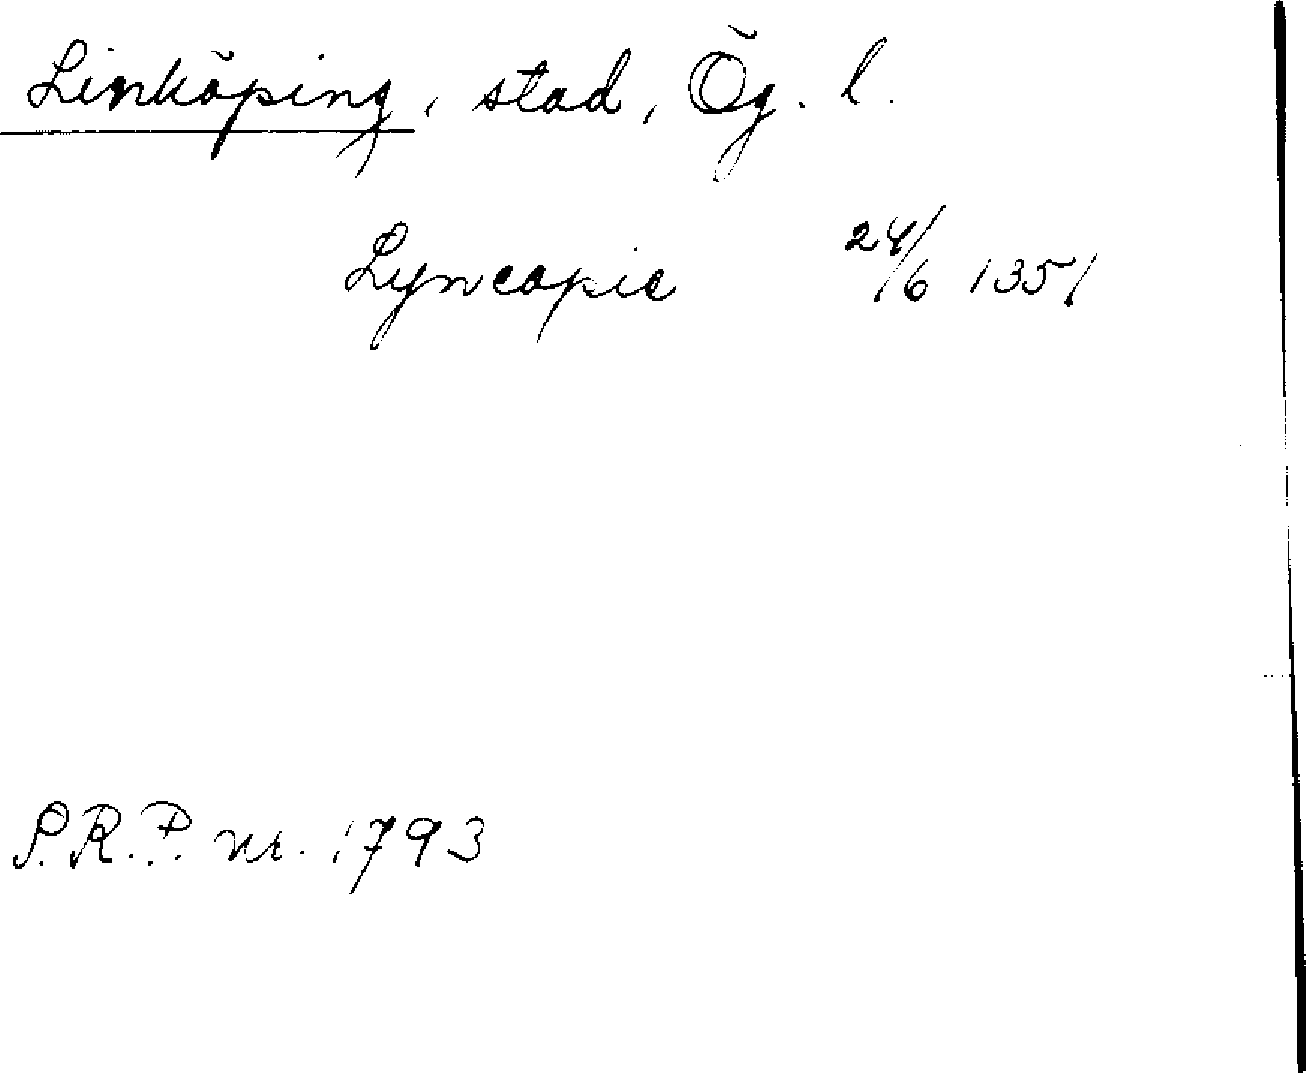 Linköping, stad, Ög. l.
Lyncopie 24/6 1351
P.R.P. nr. 1793